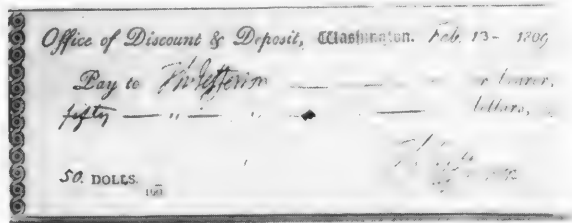 Office of Discount & Deposit, Washington. Feb. 13 - 1809
Pay to Th: Jefferson — — — or bearer,
fifty — — " — " — — dollars,
50. DOLLS. 100